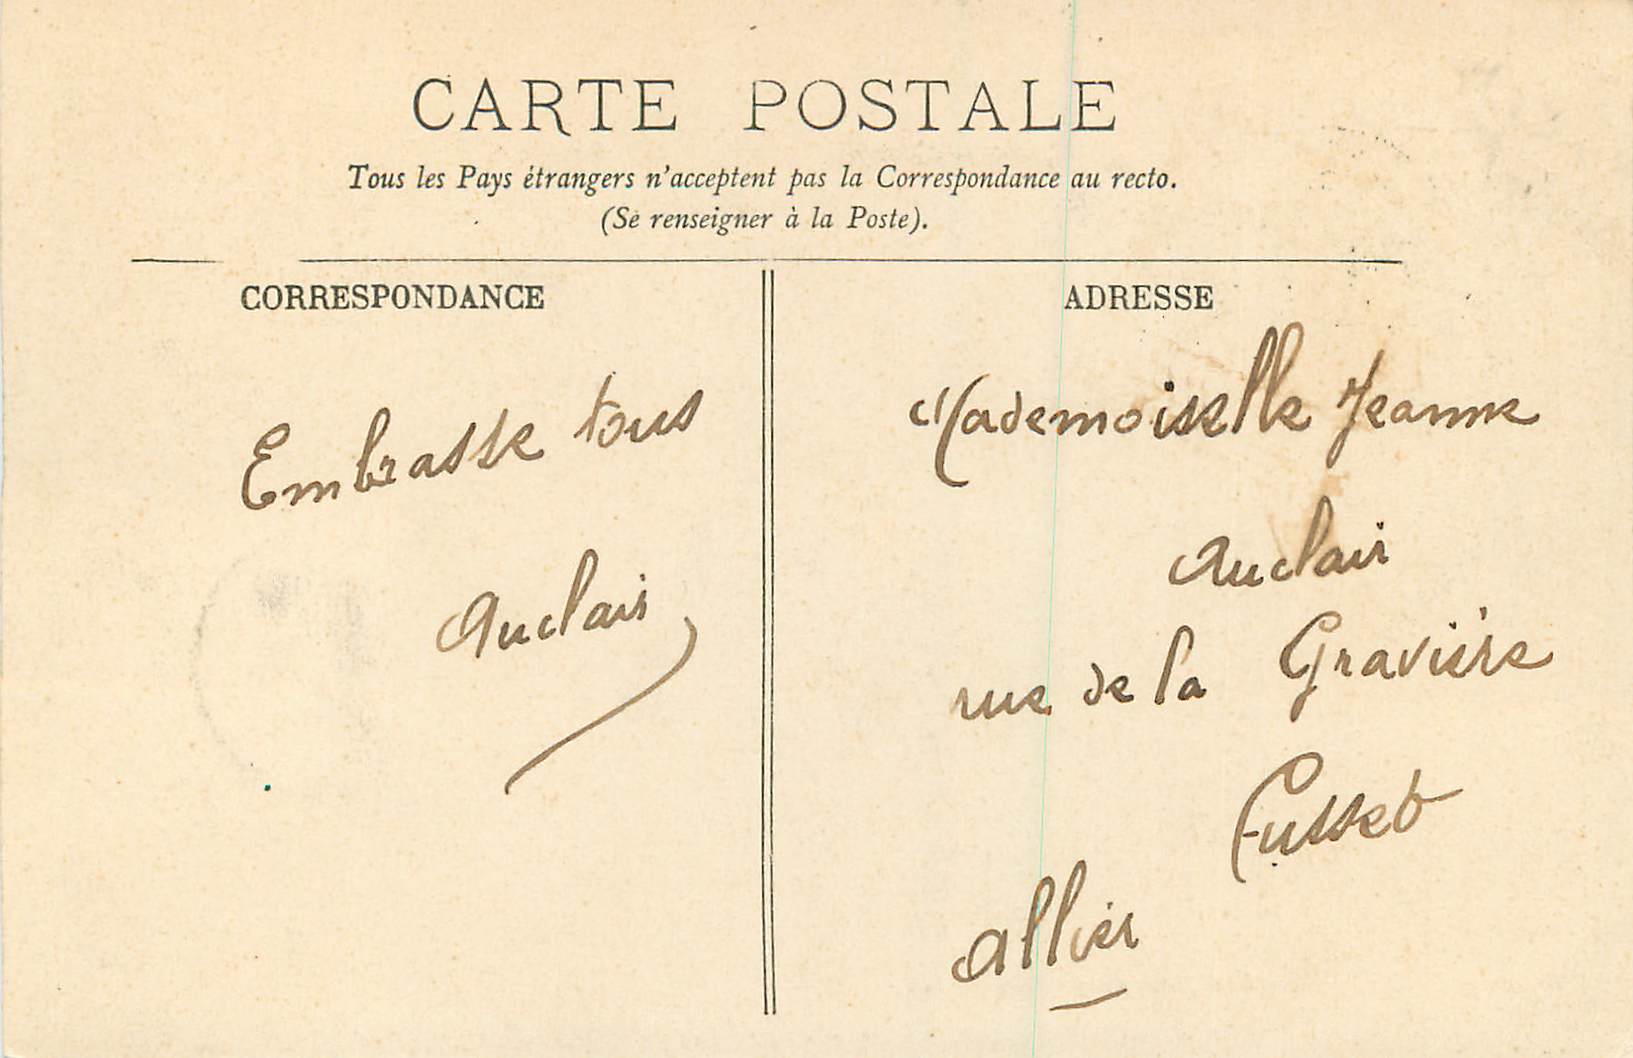 CARTE POSTALE
Tous les Pays étrangers n'acceptent pas la Correspondance au recto.
(Se renseigner à la Poste).
CORRESPONDANCE
Embrasse tous
Auclair
ADRESSE
Mademoiselle Jeanne
Auclair
rue de la Gravière
Cusset
Allier